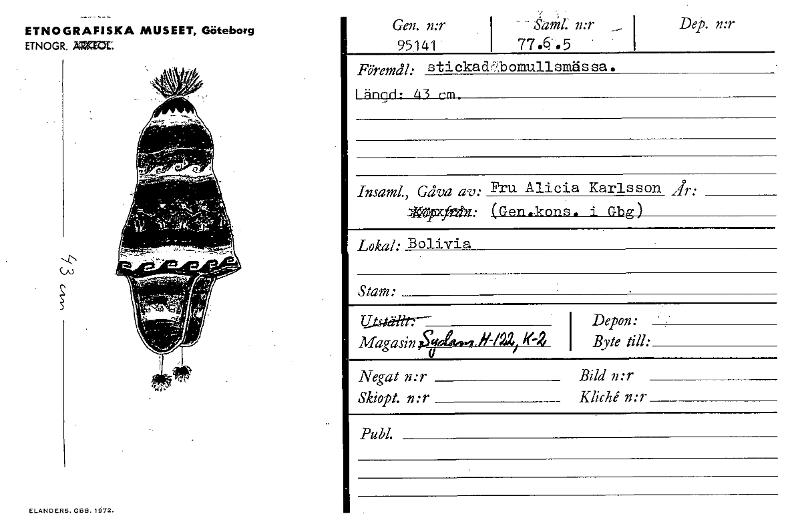 ETNOGRAFISKA MUSEET, Göteborg
ETNOGR. ARKEOL.
43 cm
ELANDERS, GBG. 1972.
Gen. n:r Saml. n:r Dep. n:r
95141 77.6.5
Föremål: stickad bomullsmässa.
Längd: 43 cm.
Insaml., Gåva av: Fru Alicia Karlsson År:
Köpt från: (Gen.kons. i Gbg)
Lokal: Bolivia
Stam:
Utställt: Depon:
Magasin Sydam. H-122, K-2 Byte till:
Negat n:r Bild n:r
Skiopt. n:r Kliché n:r
Publ.